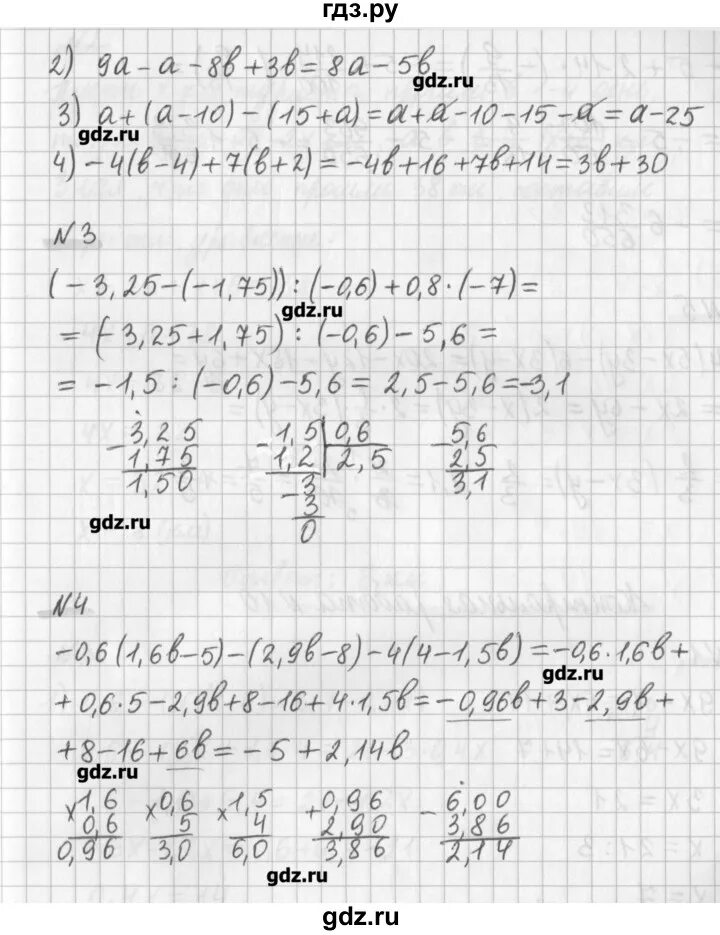 гдз.ру
2) 9a-a-8b+3b=8a-5b
gdz.ru
3) a+(a-10)-(15+a)=a+a-10-15-a=a-25
gdz.ru
4) -4(b-4)+7(b+2)=-4b+16+7b+14=3b+30
N3
(-3,25-(-1,75)):(-0,6)+0,8·(-7)=
gdz.ru
=(-3,25+1,75):(-0,6)-5,6=
=-1,5:(-0,6)-5,6=2,5-5,6=-3,1
-3,25 -1,5|0,6 -5,6
1,75 1,2|2,5 2,5
1,50 3 3,1
-3
0
gdz.ru
N4
-0,6(1,6b-5)-(2,9b-8)-4(4-1,5b)=-0,6·1,6b+
gdz.ru
+0,6·5-2,9b+8-16+4·1,5b=-0,96b+3-2,9b+
+8-16+6b=-5+2,14b
gdz.ru
×1,6 ×0,6 ×1,5 +0,96 -6,00
0,6 5 4 2,90 3,86
0,96 3,0 6,0 3,86 2,14
gdz.ru
gdz.ru